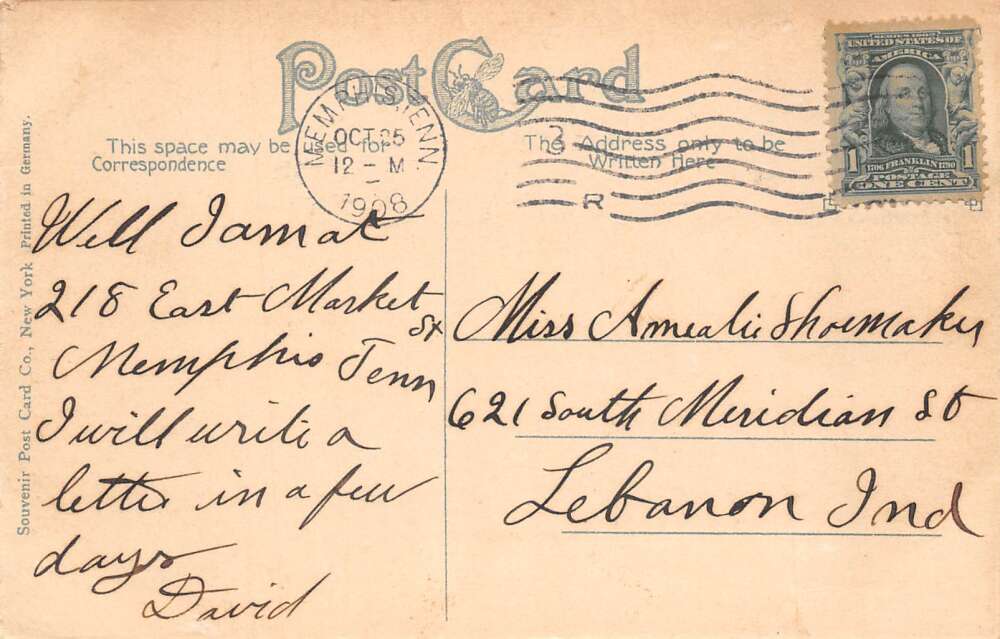 Post Card
This space may be used for
Correspondence
The Address only to be
Written Here
MEMPHIS, TENN.
OCT 25
12 - M
1908
3
R
SERIES 1902
UNITED STATES OF
AMERICA
1 1706 FRANKLIN 1790 1
POSTAGE
ONE CENT
Souvenir Post Card Co., New York Printed in Germany.
Well I am at
218 East Market
St
Memphis Tenn
I will write a
letter in a few
days
David
Miss Amealie Shoemaker
621 South Meridian St
Lebanon Ind